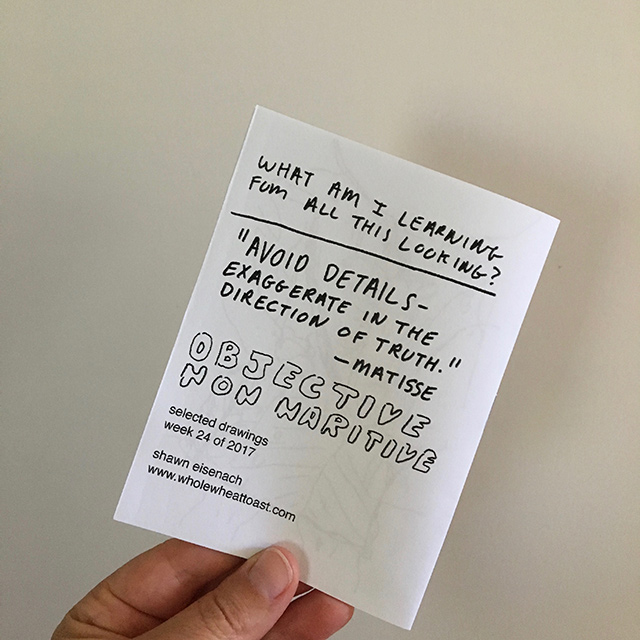 WHAT AM I LEARNING
FUM ALL THIS LOOKING?
"AVOID DETAILS-
EXAGGERATE IN THE
DIRECTION OF TRUTH."
-MATISSE
OBJECTIVE
NON NARITIVE
selected drawings
week 24 of 2017
shawn eisenach
www.wholewheattoast.com